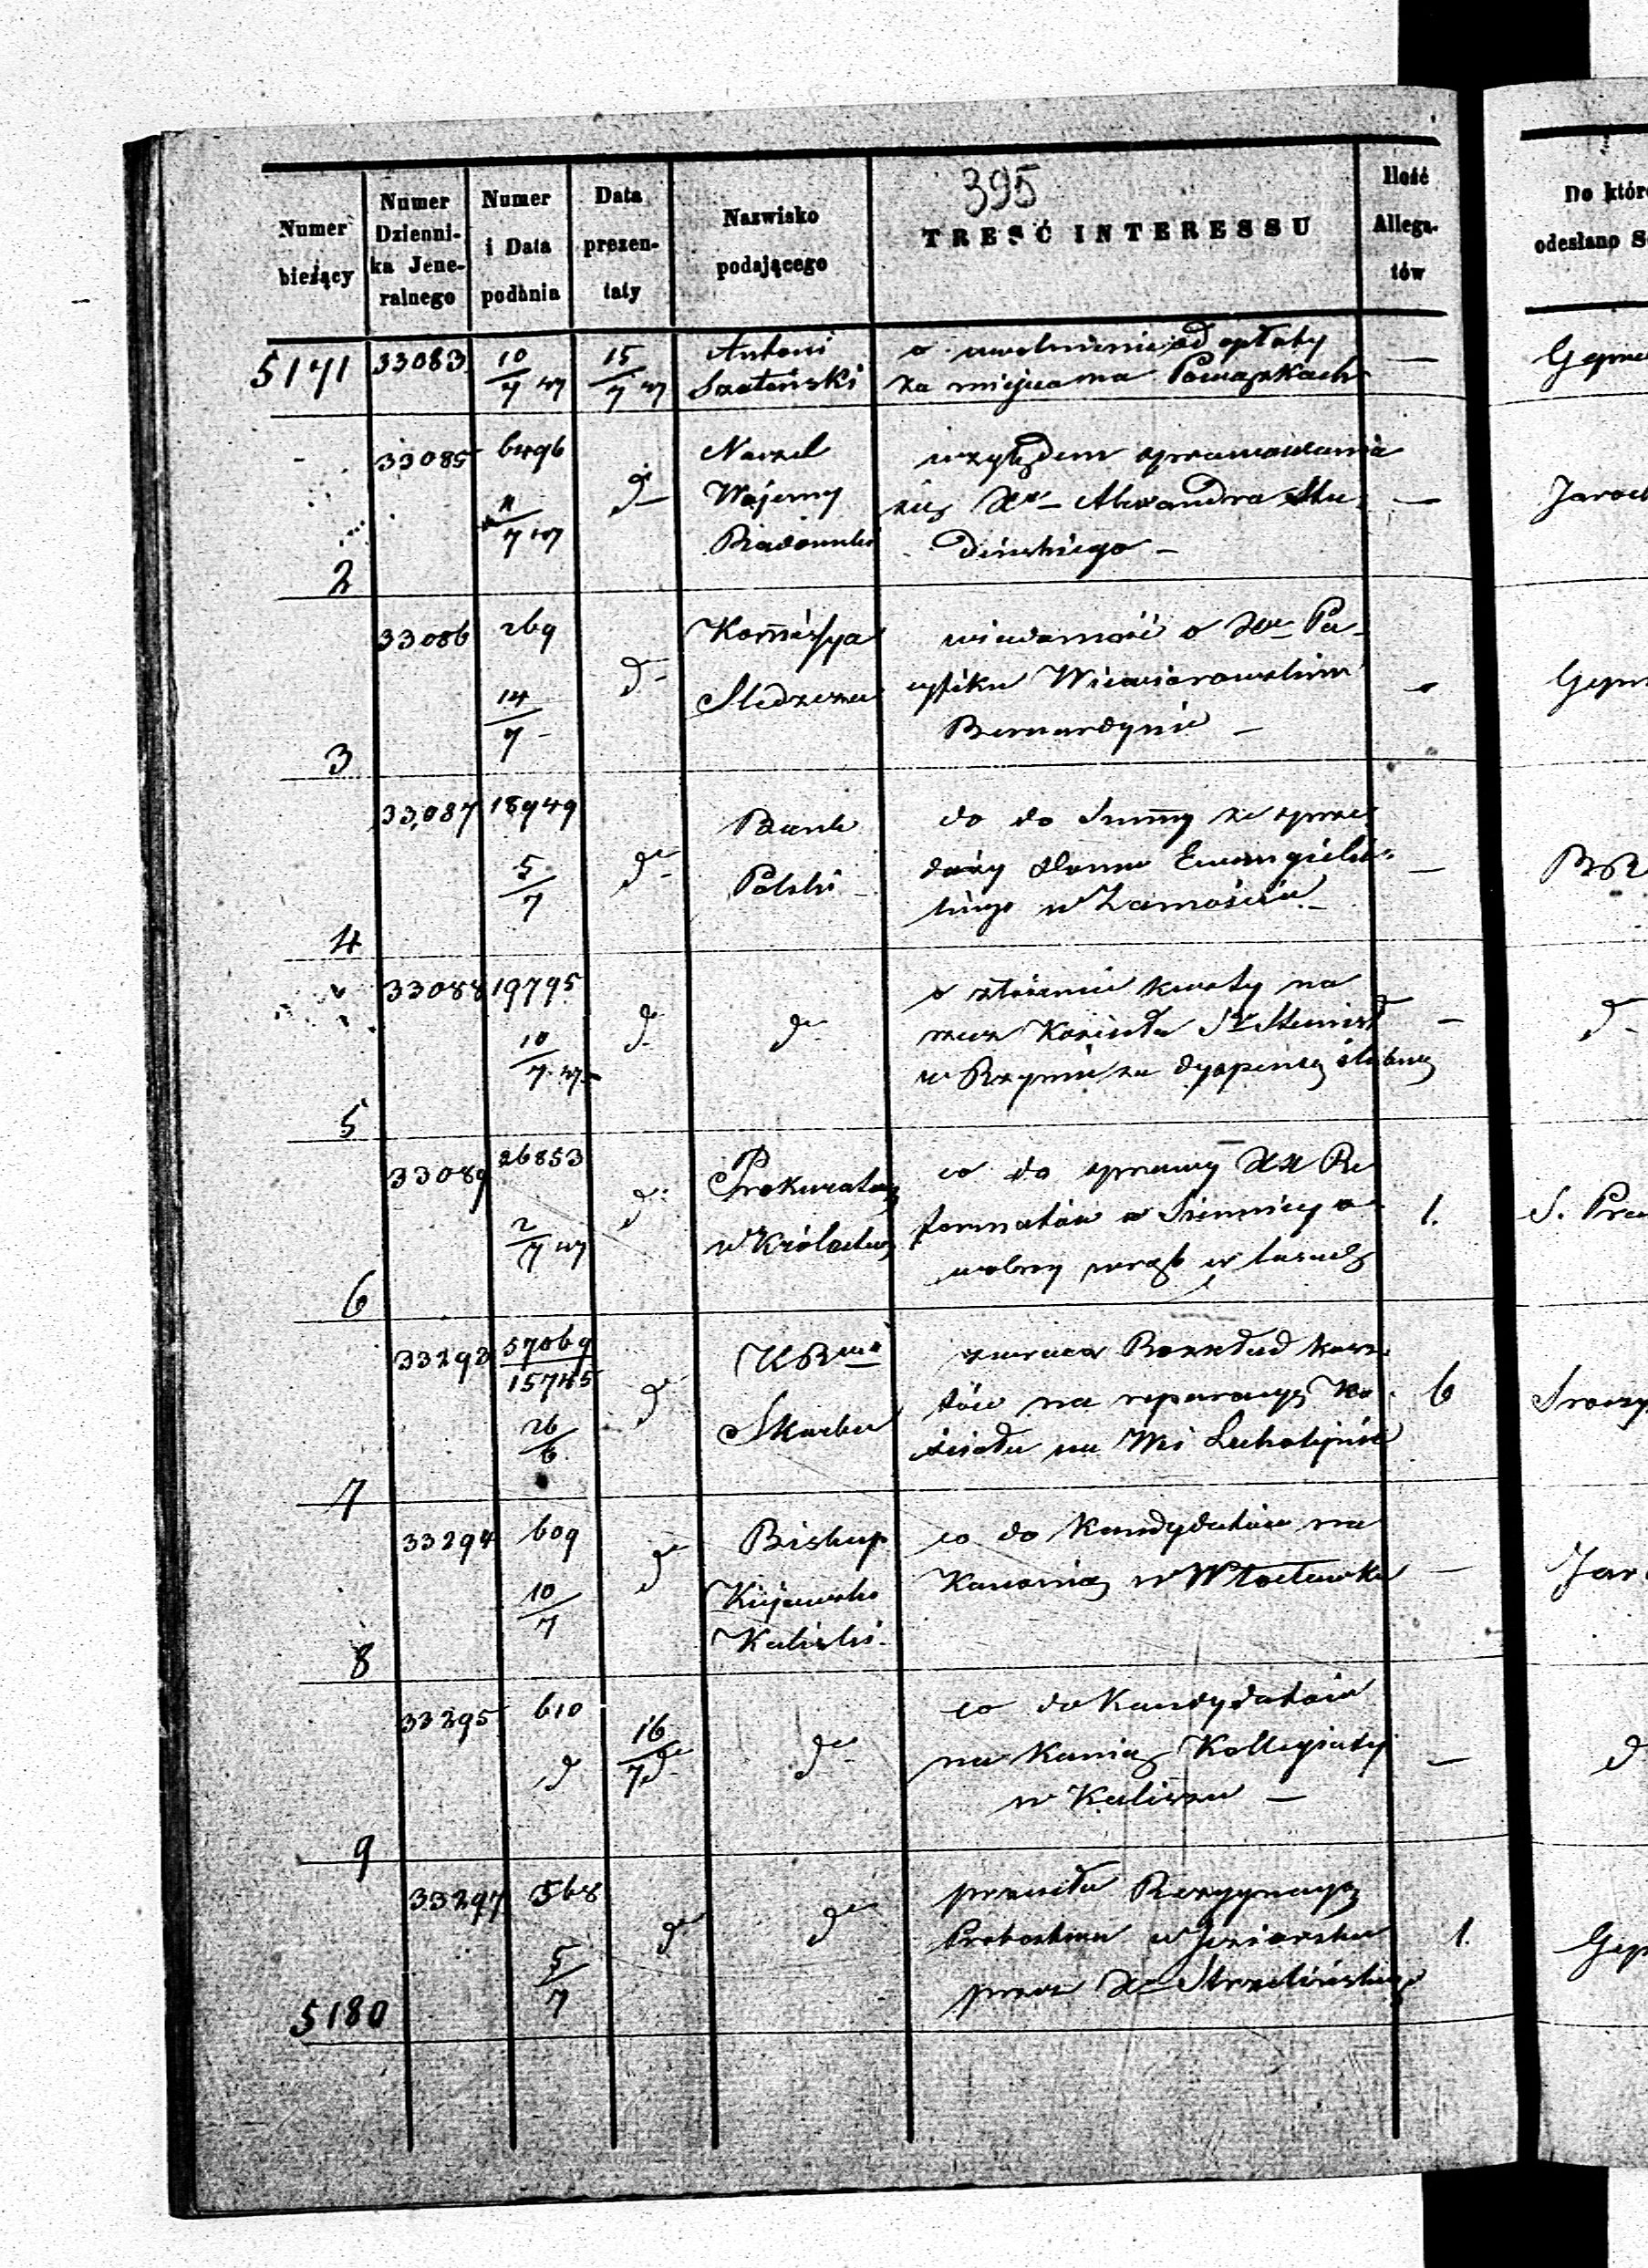 395
Numer bieżący
Numer Dzienni-
ka Jene-
ralnego
Numer
i Data
podania
Data
prezen-
taty
Nazwisko
podającego
TREŚĆ INTERESSU
Ilość
Allega-
tów
Do któr
odesłano S
5171 33083 10/7 47 15/7 47
Antoni
o uwolnienie od opłaty
za miejsce na Powązkach
—
2 33085 6496
/7 47
d°
Naczel
Wojenny
względem sprawowania
się Xa Alexandra
—
Jaroc
3 33086 269
14/7
d°
Kommissya
Śledcza
wiadomość o Xdzu Pa-
cyfiku
Bernardynie —
4 33,087 18949
5/7
d°
Bank
Polski
co do Summy ze sprze
daży domu Ewangielic-
kiego w Zamościu —
—
5 33088 19795
10/7 47
d°
d°
o złożenie kwoty na
rzecz Kościoła Sgo Stanisł
w Rzymie za dyspensę ślubną
—
d°
6 33089 26853
2/7 47
d°
Prokurator
w Królestwie
co do sprawy XX Re
formatów w Siennicy o
wolny wrąb w lasach
1.
S. Pra
7 33293 57069/15745
26/6
d°
KRna
Skarbu
zwraca Rozkład kosz-
tów na reparacyę Ko-
ścioła we Wsi
6
8 33294 609
10/7
d°
Biskup
Kujawsko
Kaliski
co do Kandydatów na
Kanonię w Włocławku
—
Jar
9 33295 610
d
16/7
d°
co do Kandydatów
na Kanią Kollegiaty
w Kaliszu —
—
d
5180 33297 568
5/7
d°
d°
przesyła Rezygnacyę
Probostwa w Jeziorsku
przez Xa Strzelińskiego
1.